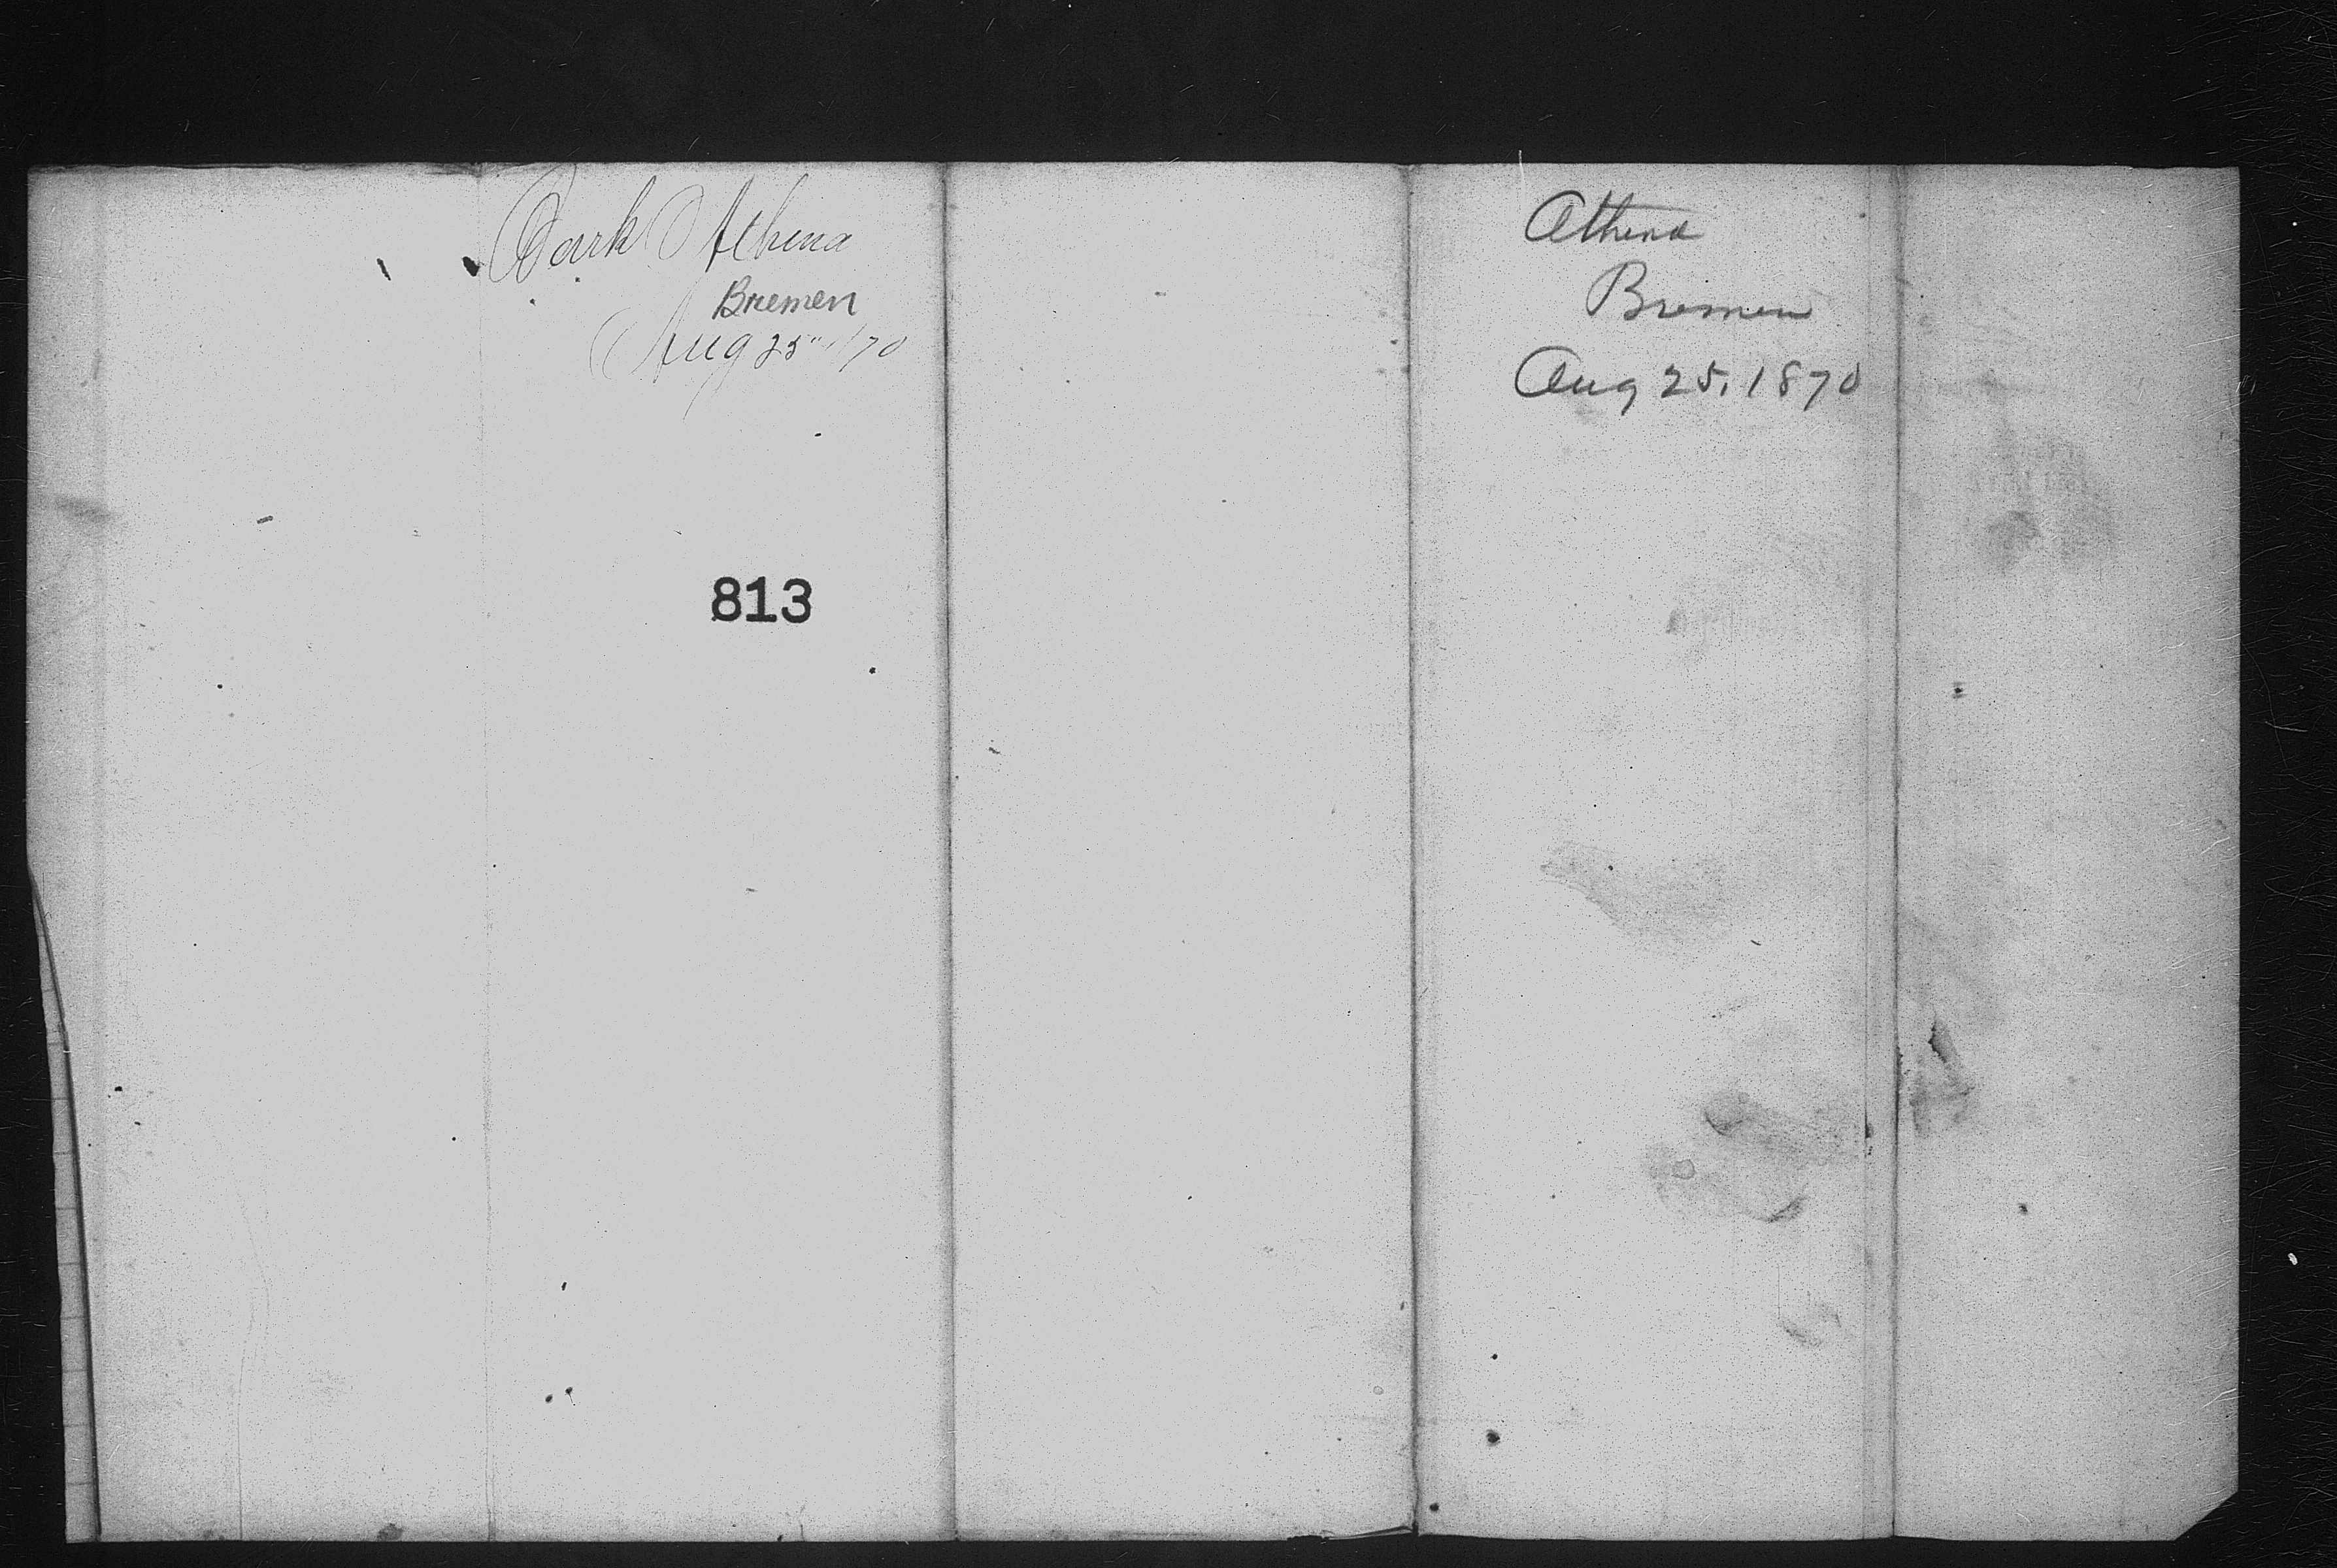 Bark Athena
Bremen
Aug 25" 1870
813
Athena
Bremen
Aug 25, 1870